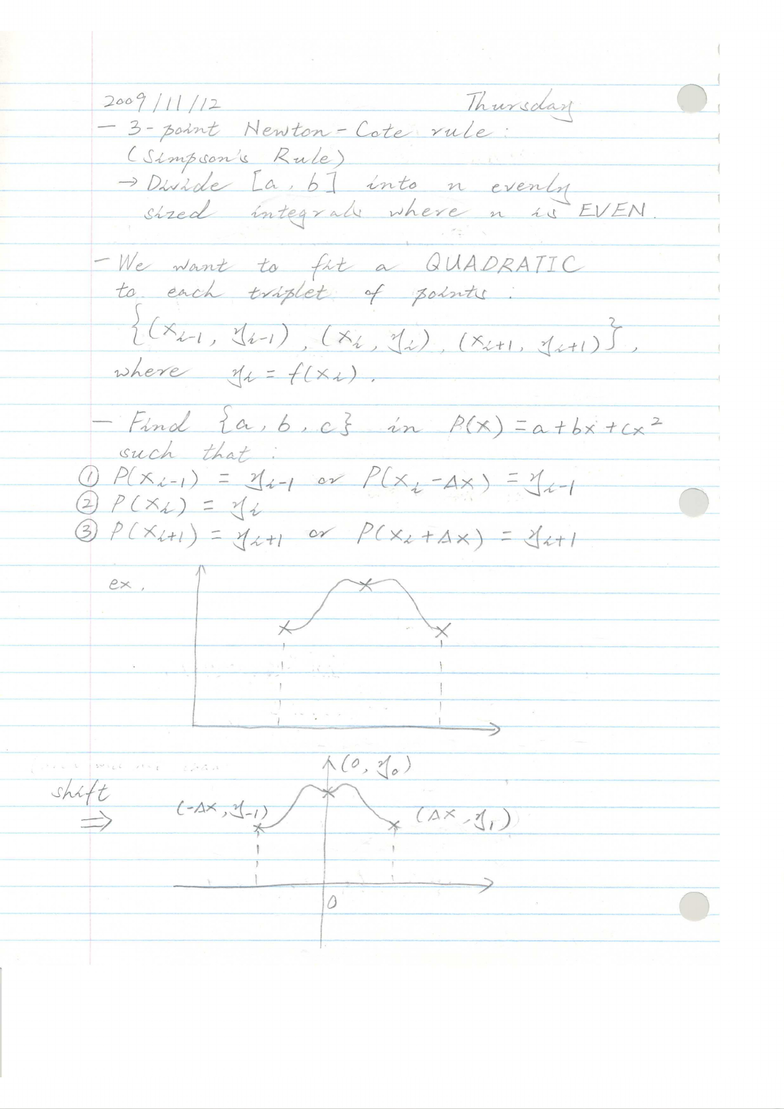 2009/11/12 Thursday
- 3-point Newton-Cote rule:
(Simpson's Rule)
→ Divide [a, b] into n evenly
sized integrals where n is EVEN.
- We want to fit a QUADRATIC
to each triplet of points:
{(x_{i-1}, y_{i-1}), (x_i, y_i), (x_{i+1}, y_{i+1})},
where y_i = f(x_i).
- Find {a, b, c} in P(x) = a+bx+cx²
such that:
① P(x_{i-1}) = y_{i-1} or P(x_i - Δx) = y_{i-1}
② P(x_i) = y_i
③ P(x_{i+1}) = y_{i+1} or P(x_i + Δx) = y_{i+1}
ex.
(0, y_0)
shift
⇒
(-Δx, y_{-1})
(Δx, y_1)
0